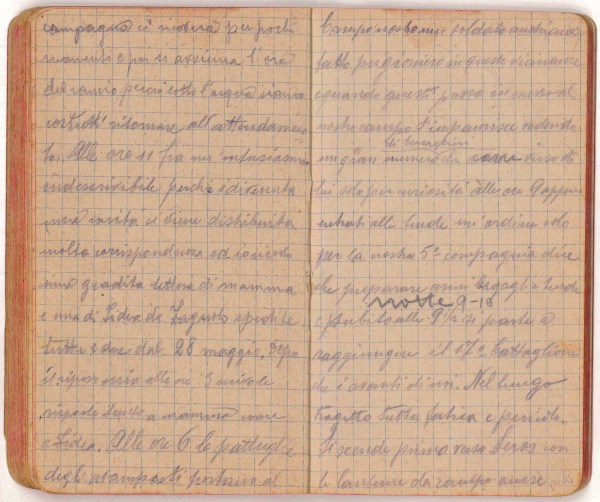 campagna ci si vedrà per pochi
momenti e poi si avvicina l'ora
del rancio perciò sotto l'acqua siamo
costretti ritornare all'attendamen
to. Alle ore 11 fra un entusiasmo
indescrivibile perchè è divenuta
una rarità ci viene distribuita
molta corrispondenza ed io ricevo
una gradita lettera di mamma
e una di Lidea da spedite
tutte e due dal 28 maggio. Dopo
il riposo sia alle ore 3 arrivo le
risposte a mamma come
a Lidea. Alle ore 6 le pattuglie
degli avamposti portano al
campo nostro un soldato austriaco
fatto prigioniero in queste vicinanze
e quando questi passa in mezzo al
nostro campo s'impaurisce vedendo
di bersaglieri
un gran numero che corre verso di
lui solo per curiosità alle ore 9 appena
entrati alle tende un'ordine solo
per la nostra 5ª compagnia dice
di preparare armi bagagli e tende
notte 9-10
e subito alle 9½ si parte a
raggiungere il 17º Battaglione
che è avanti di noi. Nel lungo
tragitto tutta fatica e pericolo.
Si scende prima verso con
le lanterne da campo accese